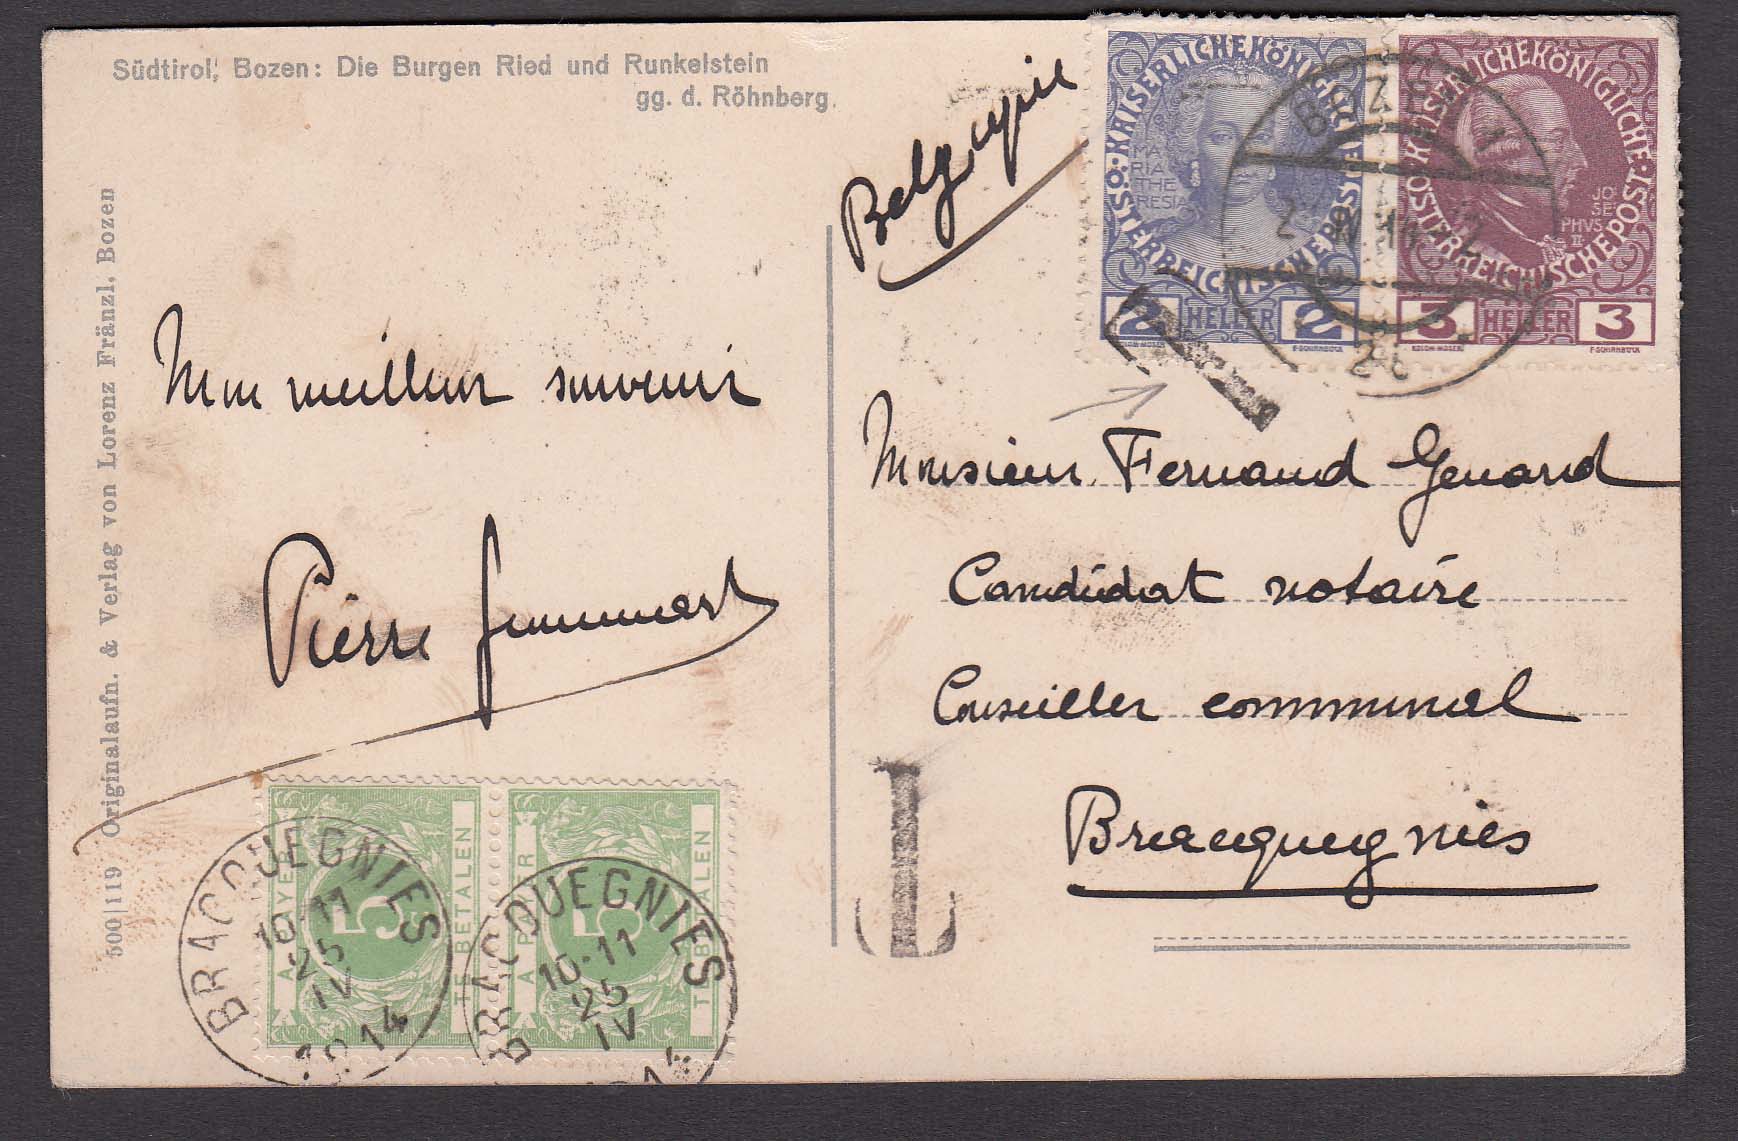 Südtirol, Bozen: Die Burgen Ried und Runkelstein
gg. d. Röhnberg.
500|119 Originalaufn. & Verlag von Lorenz Fränzl, Bozen
Mon meilleur souvenir
Pierre
Belgique
ÖSTERREICHISCHE POST KAISERLICHE KÖNIGLICHE
MA
RIA
THE
RESIA
2 HELLER 2
KAISERLICHE KÖNIGLICHE ÖSTERREICHISCHE POST
JO
SE
PHVS
II
3 HELLER 3
BOZEN 1
T
Monsieur Fernand Genard
Candidat notaire
Conseiller communal
Bracquegnies
T
A PAYER 5 TE BETALEN
A PAYER 5 TE BETALEN
BRACQUEGNIES
10-11
25
IV
1914
BRACQUEGNIES
10-11
25
IV
1914